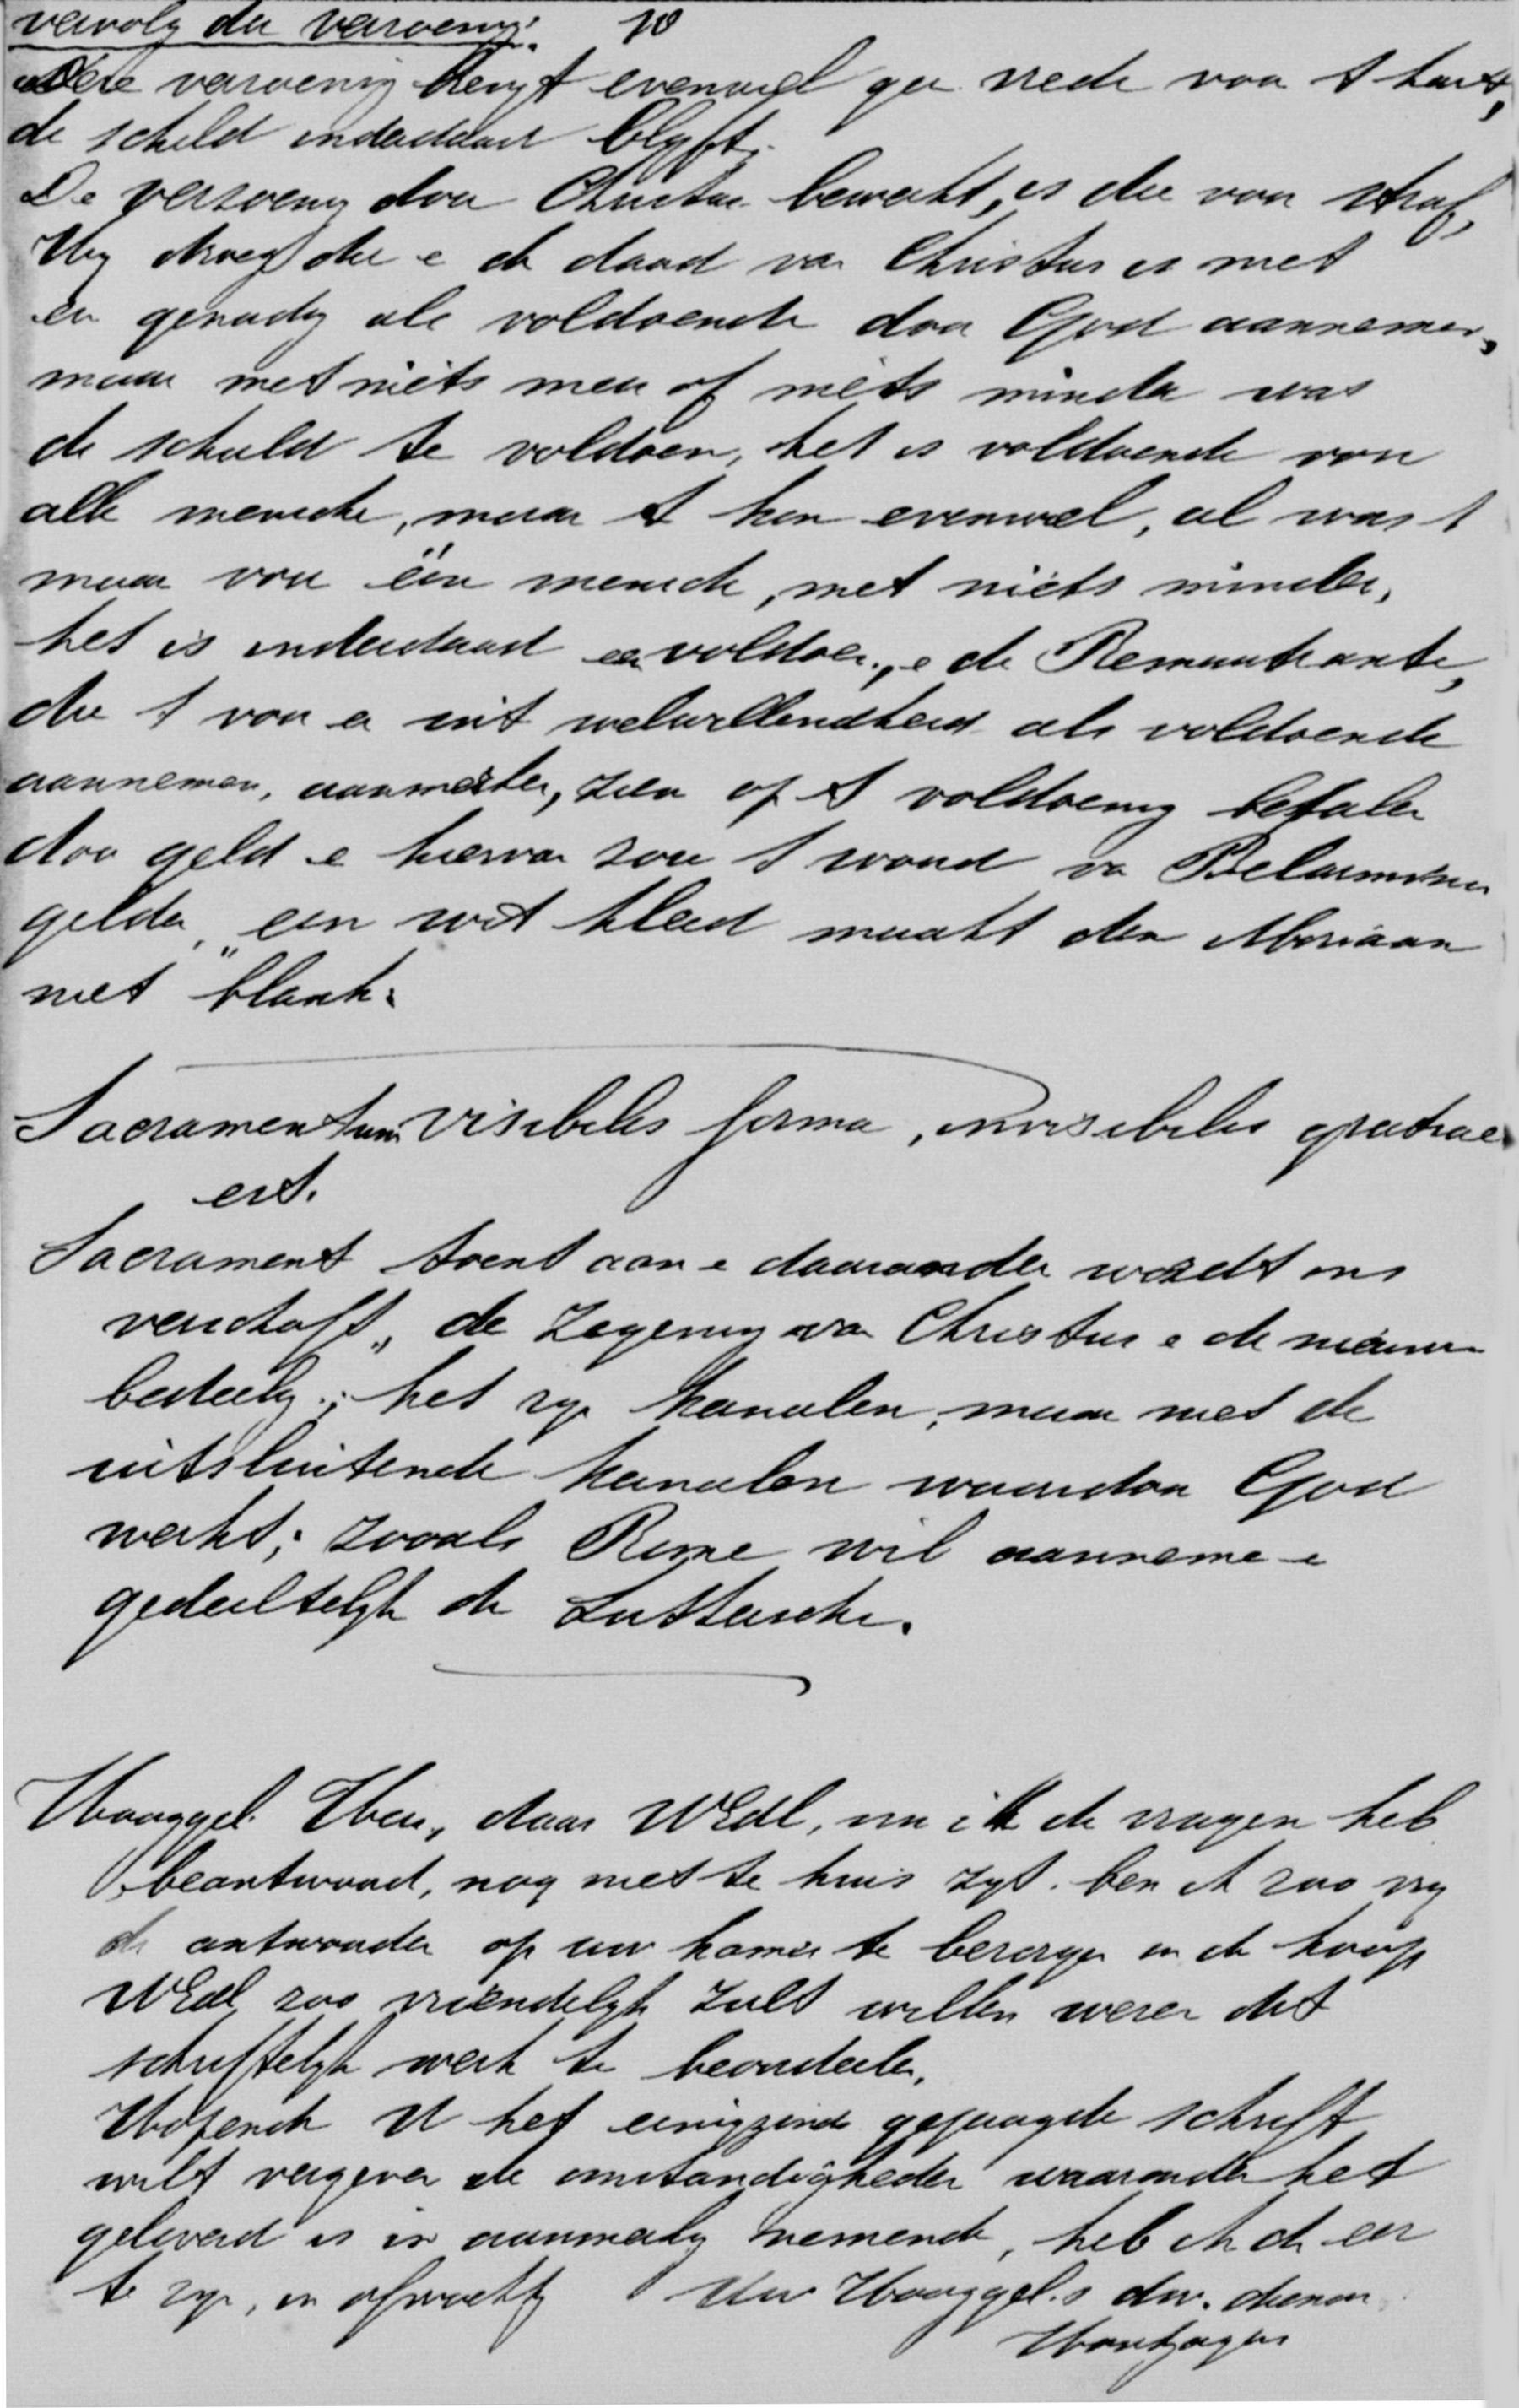 vervolg der verzoeng. 10
Deze verzoenig brengt evenwel gee vrede voor 't hart,
de schuld inderdaad blyft.
De verzoeng door Christus bewerkt, is die voor straf,
Hy droeg die e de daad va Christus is niet
een genadig als voldoende door God aannemen,
maar met niets meer of niets minder was
de schuld te voldoen, het is voldoende voor
alle mensche, maar 't kon evenwel, al was 't
maar voor één mensch, met niets minder,
het is inderdaad een voldoen, e de Remonstrante,
die 't voor e uit welwillendheid als voldoende
aannemen, aanmerken, zien op 't voldoening betalen
door geld e hierva zou 't woord va Belarminus
gelden, "een wit kleed maakt den Moriaan
niet blank.
Sacramentum visibilis forma, invisibilis gratiae
est.
Sacrament toont aan e daaronder wordt ons
verschaft, de zegening van Christus e de nieuwe
bedeelg.; het zyn kanalen, maar niet de
uitsluitende kanalen waardoor God
werkt; zooals Rome wil aanneme e
gedeeltelyk de Luttersche.
Hooggel. Heer, daar WEdl, nu ik de vragen heb
beantwoord, nog niet te huis zyt. ben ik zoo vry
de antwoorden op uw kamer te bezorgen in de hoop
WEdl zoo vriendelyk zult willen wezen dit
schriftelyk werk te beoordeelen.
Hopende U het eenigzinds gejaagde schrift
wilt vergeven de omstandigheden waaronder het
geleverd is in aanmerkg nemende, heb ik de eer
te zyn, in afwachtg Uw Hooggel.s dw. dienaar